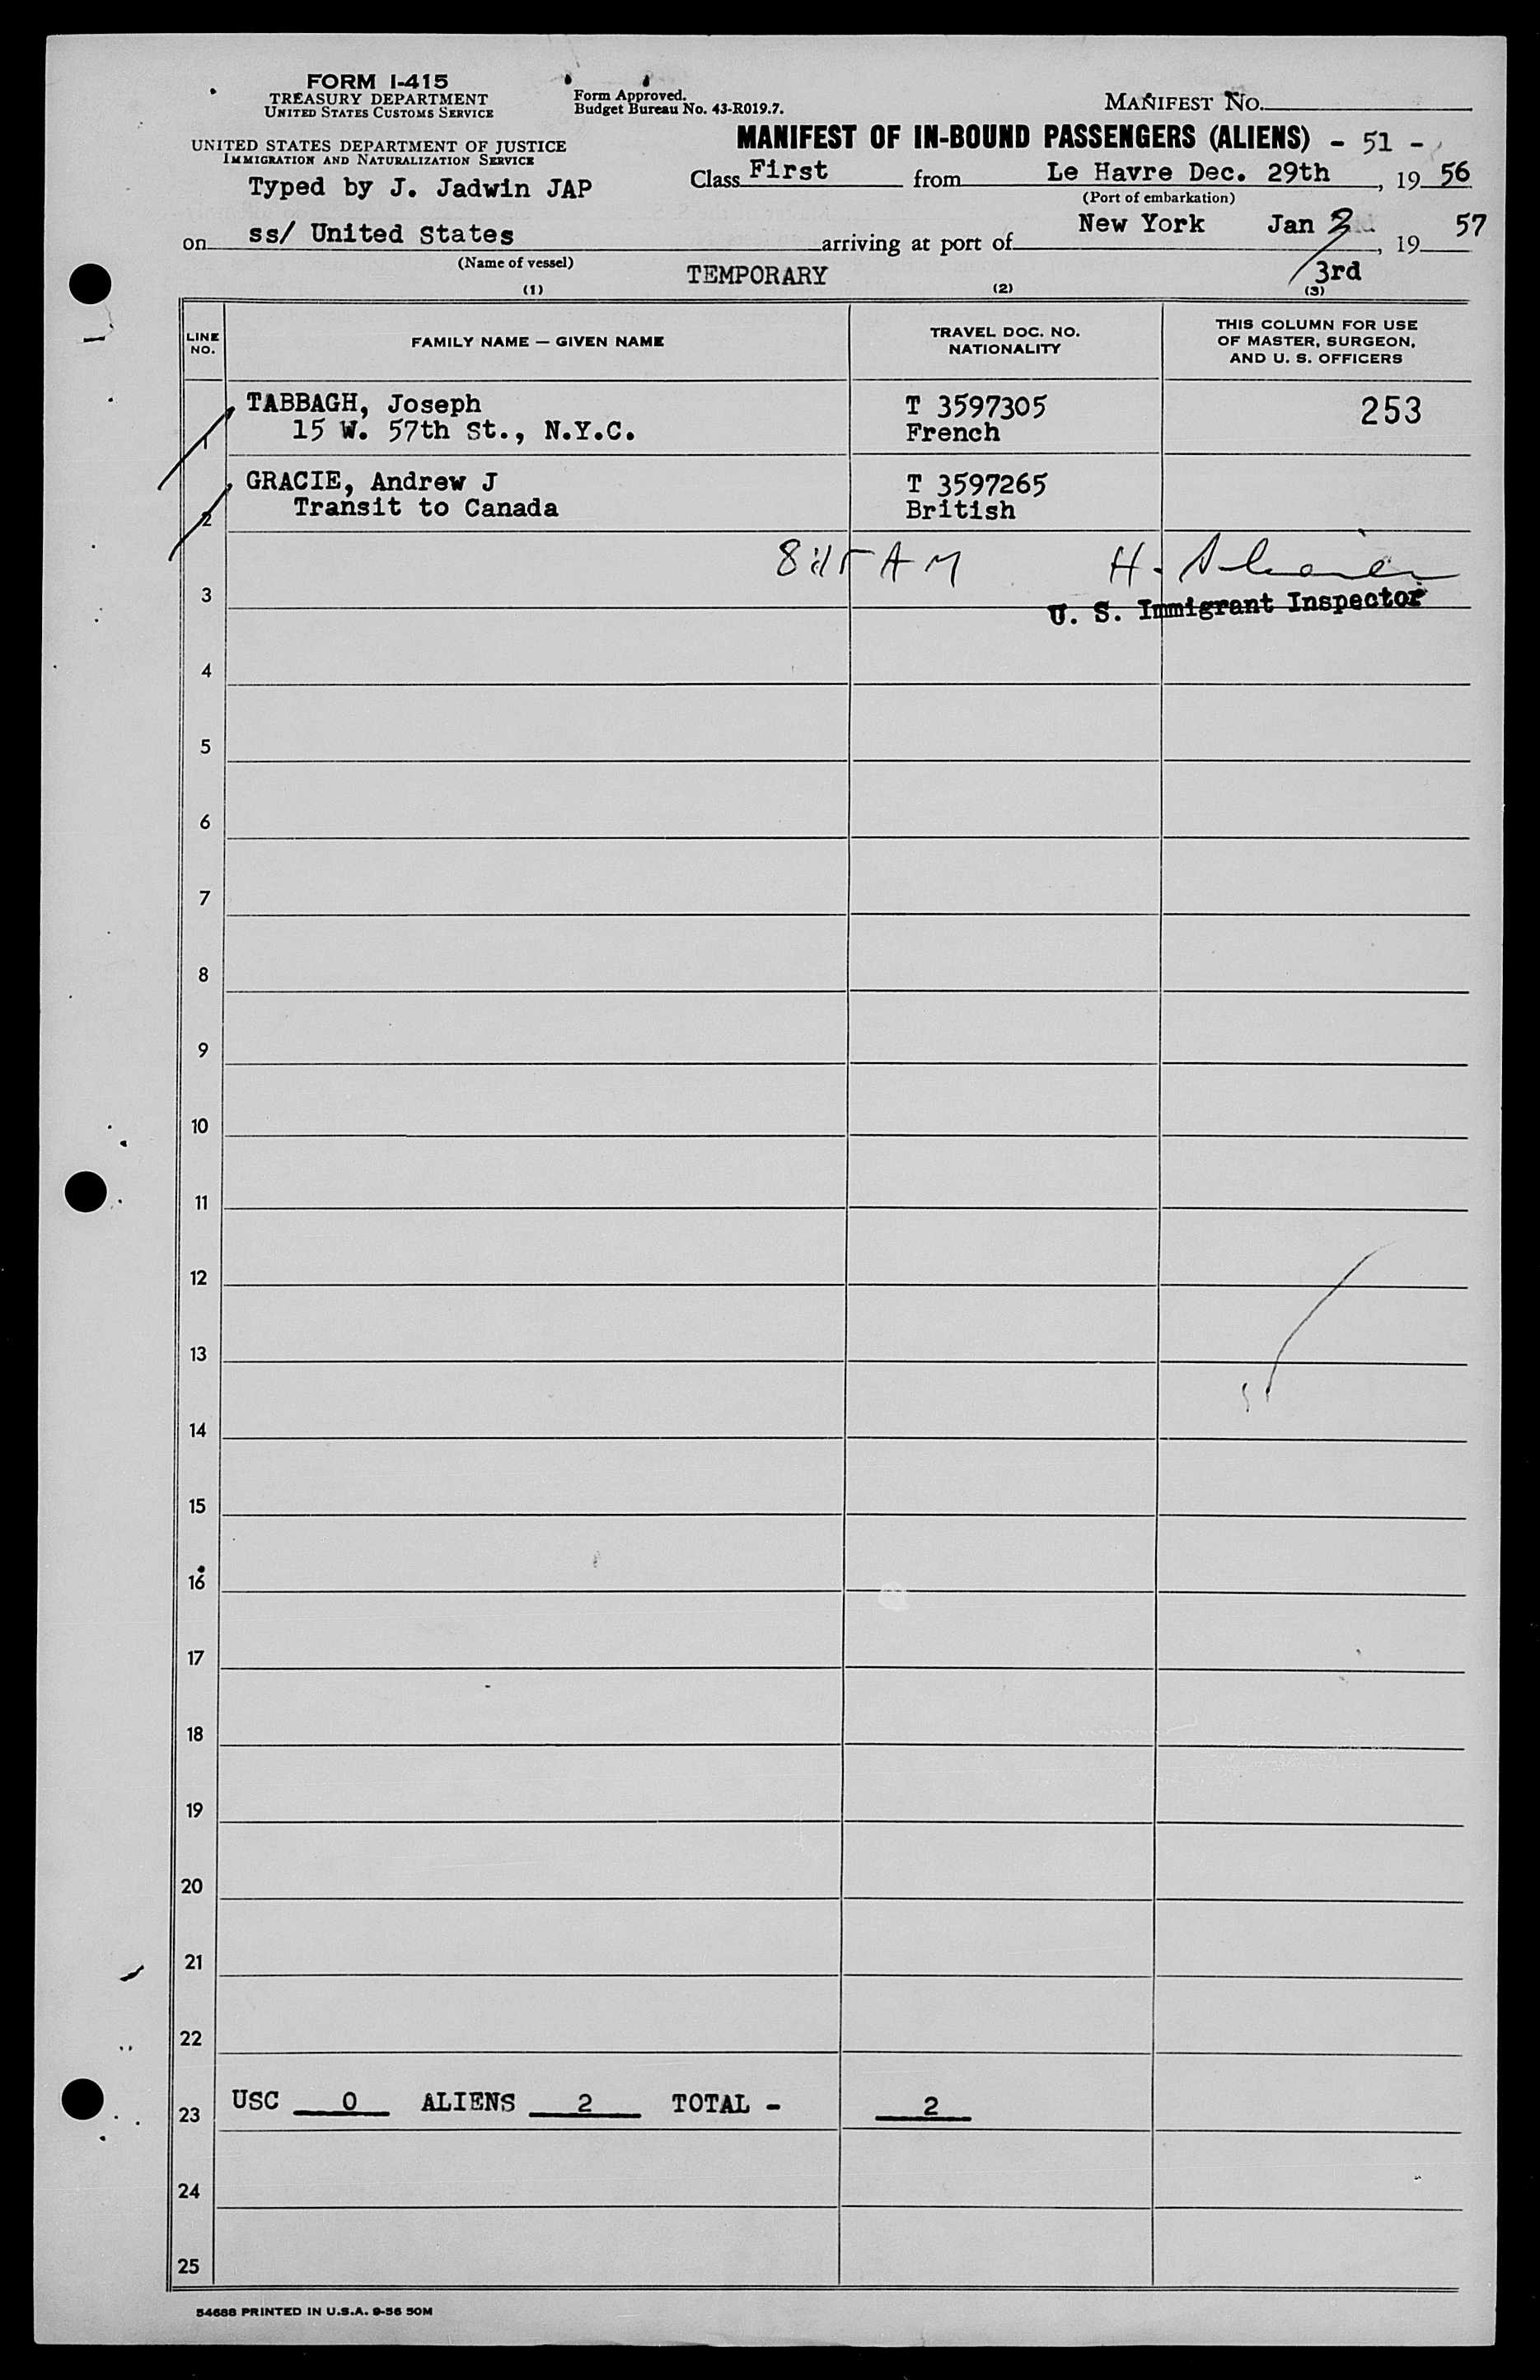 FORM I-415
TREASURY DEPARTMENT
UNITED STATES CUSTOMS SERVICE
Form Approved.
Budget Bureau No. 43-R019.7.
MANIFEST NO.
UNITED STATES DEPARTMENT OF JUSTICE
IMMIGRATION AND NATURALIZATION SERVICE
MANIFEST OF IN-BOUND PASSENGERS (ALIENS) - 51 -
Typed by J. Jadwin JAP
Class First from Le Havre Dec. 29th, 19 56
(Port of embarkation)
on ss/ United States arriving at port of New York Jan, 19 57
(Name of vessel)
TEMPORARY
3rd
(1) (2) (3)
LINE NO.
FAMILY NAME — GIVEN NAME
TRAVEL DOC. NO.
NATIONALITY
THIS COLUMN FOR USE
OF MASTER, SURGEON,
AND U. S. OFFICERS
1 TABBAGH, Joseph T 3597305 253
15 W. 57th St., N.Y.C. French
2 GRACIE, Andrew J T 3597265
Transit to Canada British
8:15 AM H.
3 U. S. Immigrant Inspector
4
5
6
7
8
9
10
11
12
13
14
15
16
17
18
19
20
21
22
23 USC 0 ALIENS 2 TOTAL - 2
24
25
54688 PRINTED IN U.S.A. 9-56 50M